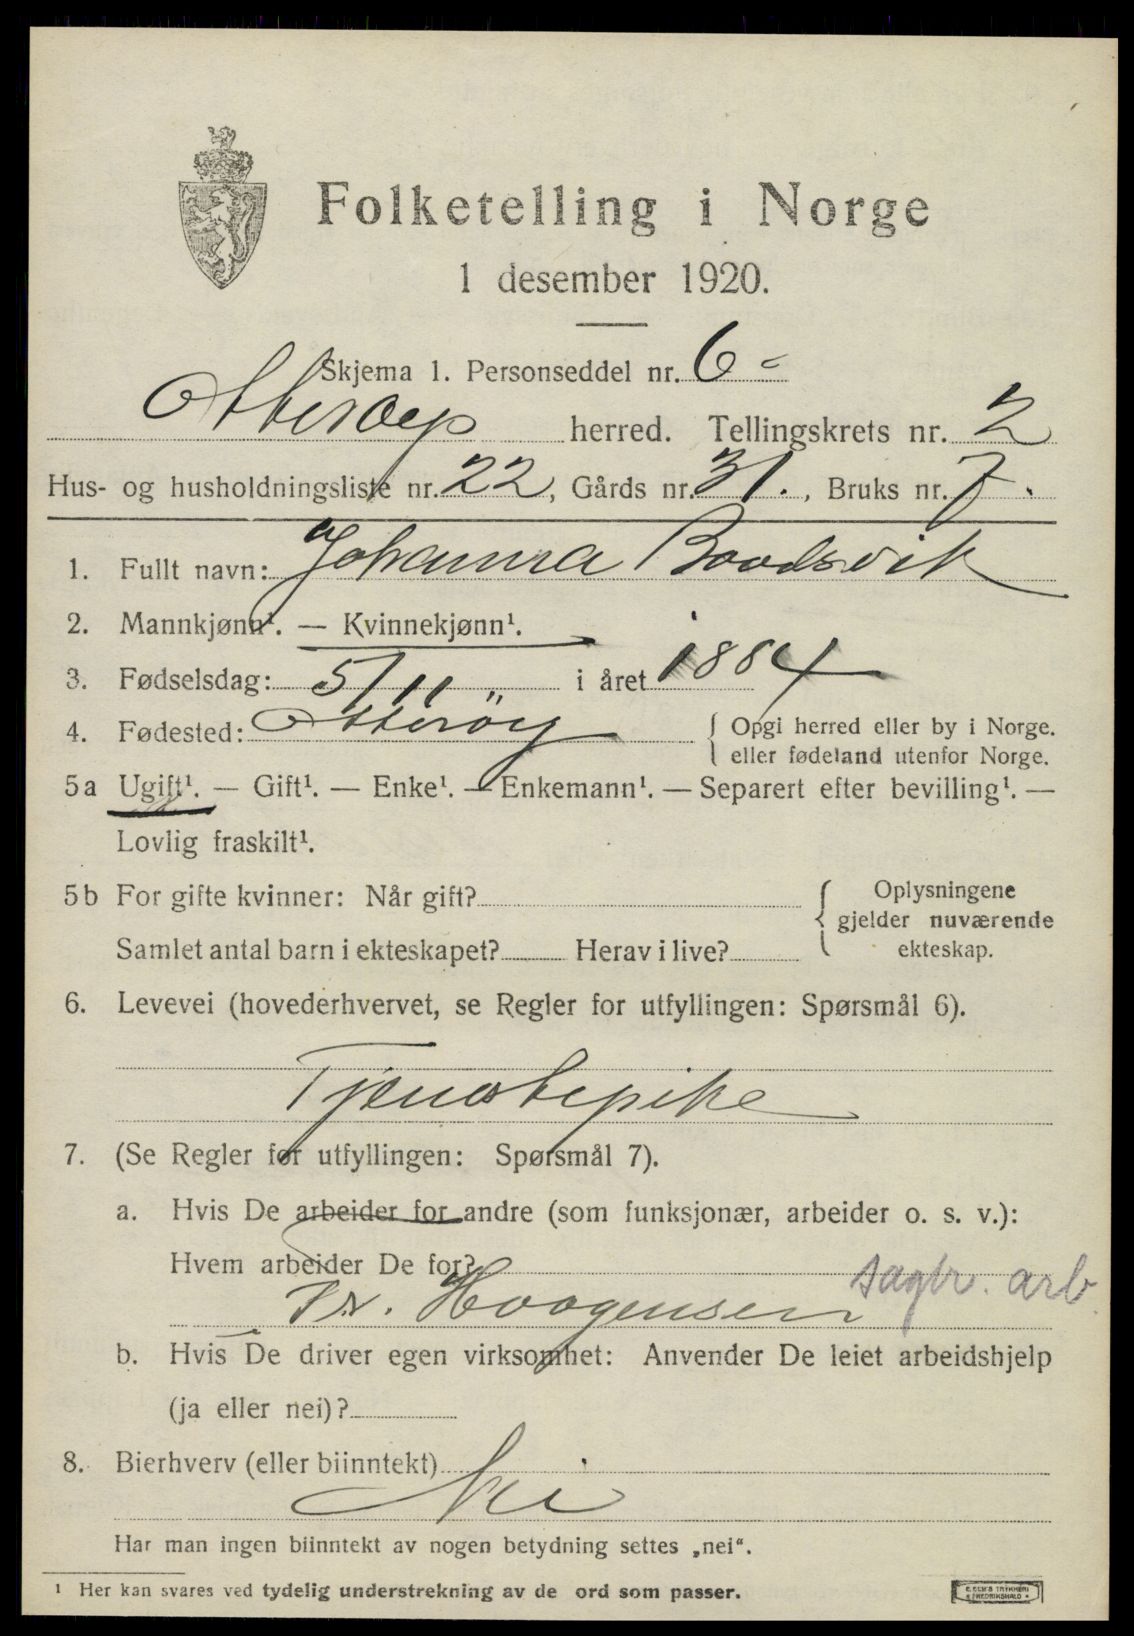 Folketelling i Norge
1 desember 1920.
Skjema 1. Personseddel nr. 6
Otterøy herred. Tellingskrets nr. 2
Hus- og husholdningsliste nr. 22, Gårds nr. 31., Bruks nr. 7.
1. Fullt navn: Johanna Baadsvik
2. Mannkjønn¹. — Kvinnekjønn¹.
3. Fødselsdag: 5/11 i året 1884
4. Fødested: Otterøy { Opgi herred eller by i Norge.
eller fødeland utenfor Norge.
5a Ugift¹. — Gift¹. — Enke¹. — Enkemann¹. — Separert efter bevilling¹. —
Lovlig fraskilt¹.
5b For gifte kvinner: Når gift? { Oplysningene
gjelder nuværende
Samlet antal barn i ekteskapet? Herav i live? ekteskap.
6. Levevei (hovederhvervet, se Regler for utfyllingen: Spørsmål 6).
Tjenestepike
7. (Se Regler for utfyllingen: Spørsmål 7).
a. Hvis De arbeider for andre (som funksjonær, arbeider o. s. v.):
Hvem arbeider De for? sagbr. arb
Haagensen
b. Hvis De driver egen virksomhet: Anvender De leiet arbeidshjelp
(ja eller nei)?
8. Bierhverv (eller biinntekt)
Nei
Har man ingen biinntekt av nogen betydning settes „nei“.
¹ Her kan svares ved tydelig understrekning av de ord som passer.